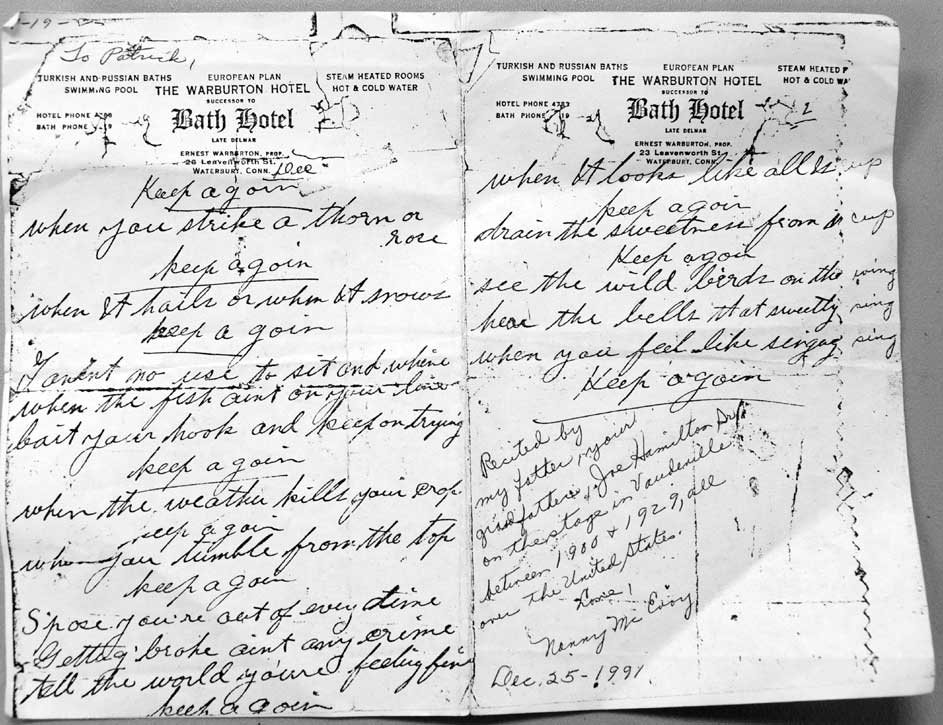 -19-
To Patrick,
TURKISH AND RUSSIAN BATHS
SWIMMING POOL
EUROPEAN PLAN
THE WARBURTON HOTEL
SUCCESSOR TO
Bath Hotel
LATE DELMAR
STEAM HEATED ROOMS
HOT & COLD WATER
HOTEL PHONE
BATH PHONE
ERNEST WARBURTON, PROP.
26 Leavenworth St.
WATERBURY, CONN.
Keep a goin
when you strike a thorn or
rose
keep a goin
when It hails or when It snows
keep a goin
Taint no use to sit and whine
when the fish aint on your line
bait your hook and keep on trying
keep a goin
when the weather kills your crop
keep a goin
when you tumble from the top
keep a goin
S'pose you're out of every dime
Getting broke aint any crime
tell the world you're feeling fine
keep a goin
TURKISH AND RUSSIAN BATHS
SWIMMING POOL
EUROPEAN PLAN
THE WARBURTON HOTEL
SUCCESSOR TO
Bath Hotel
LATE DELMAR
STEAM HEATED
HOT & COLD
HOTEL PHONE 4783
BATH PHONE
2
ERNEST WARBURTON, PROP.
23 Leavenworth St.
WATERBURY, CONN.
when It looks like all Is up
keep a goin
drain the sweetness from cup
Keep a goin
see the wild birds on the wing
hear the bells that sweetly ring
when you feel like singing sing
Keep a goin
Recited by
my father, your
grandfather, Joe Hamilton
on the stage in Vaudeville
between 1900 & 1929, all
over the United States.
Love!
Nanny Mc Evoy
Dec. 25-1991